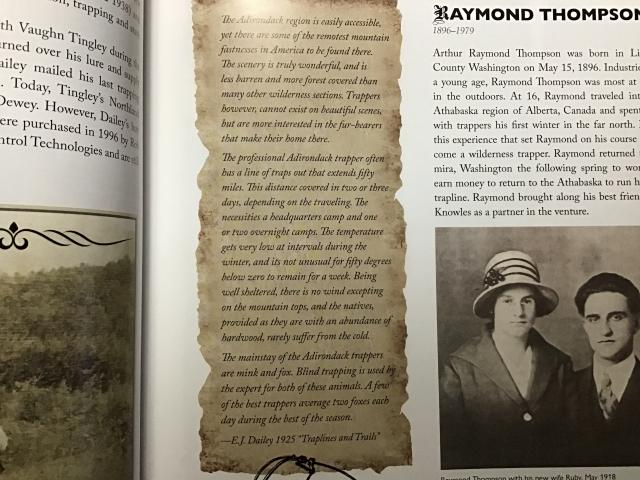 1938) and
n, trapping and
th Vaughn Tingley during the
urned over his lure and supply
ailey mailed his last trapping
. Today, Tingley's
Dewey. However, Dailey's
ere purchased in 1996 by
ntrol Technologies and are still
The Adirondack region is easily accessible,
yet there are some of the remotest mountain
fastnesses in America to be found there.
The scenery is truly wonderful, and is
less barren and more forest covered than
many other wilderness sections. Trappers
however, cannot exist on beautiful scenes,
but are more interested in the fur-bearers
that make their home there.
The professional Adirondack trapper often
has a line of traps out that extends fifty
miles. This distance covered in two or three
days, depending on the traveling. The
necessities a headquarters camp and one
or two overnight camps. The temperature
gets very low at intervals during the
winter, and its not unusual for fifty degrees
below zero to remain for a week. Being
well sheltered, there is no wind excepting
on the mountain tops, and the natives,
provided as they are with an abundance of
hardwood, rarely suffer from the cold.
The mainstay of the Adirondack trappers
are mink and fox. Blind trapping is used by
the expert for both of these animals. A few
of the best trappers average two foxes each
day during the best of the season.
—E.J. Dailey 1925 "Traplines and Trails"
RAYMOND THOMPSON
1896–1979
Arthur Raymond Thompson was born in Li
County Washington on May 15, 1896. Industri
a young age, Raymond Thompson was most at
in the outdoors. At 16, Raymond traveled int
Athabaska region of Alberta, Canada and spent
with trappers his first winter in the far north.
this experience that set Raymond on his course
come a wilderness trapper. Raymond returned
mira, Washington the following spring to wor
earn money to return to the Athabaska to run h
trapline. Raymond brought along his best frien
Knowles as a partner in the venture.
Raymond Thompson with his new wife Ruby, May 1918